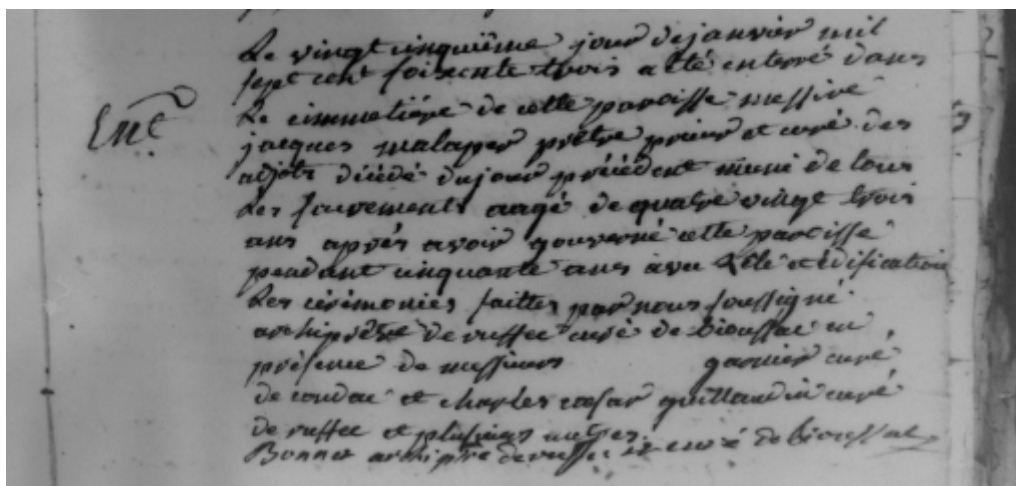 Le vingt cinquiéme jour de janvier mil
sept cent soixente trois a été enterré dans
Ent
Le cimmetiére de cette paroisse messire
jacques malaper prêtre prieur et curé des
adjots décédé du jour précédent muni de tous
Les sacrements aagé de quatre vingt trois
ans aprés avoir gouverné cette paroisse
pendant cinquante ans avec zéle et édification
Les cérémonies faittes par nous soussigné
archiprêtre de ruffec curé de bioussac en
présence de messieurs garnier curé
de condac et charles cesar guillaudin curé
de ruffec et plusieurs autres.
Bonnet archiprê de ruffec et curé de bioussac